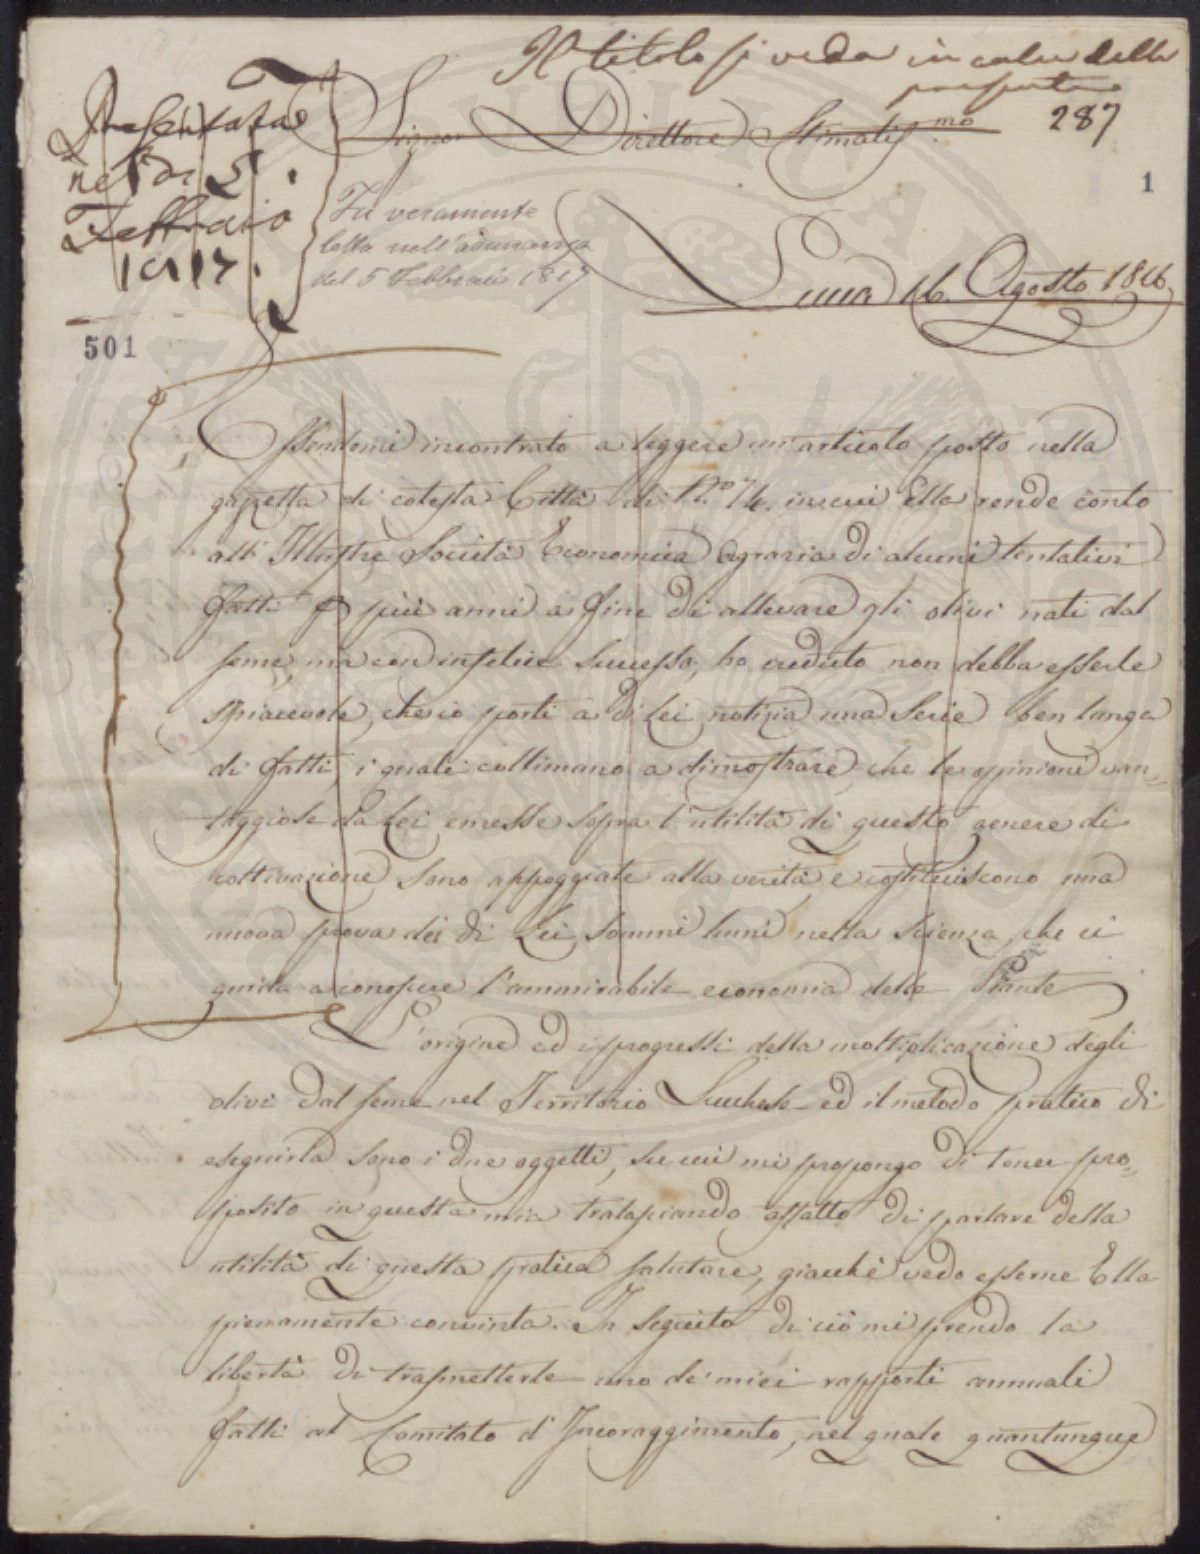 Il titolo si veda in calce della
presente
287
Presentata
nel dì 5
Febbraio
1817.
Signor Direttore Stimatis.mo
1
Fu veramente
letta nell'adunanza
del 5 Febbraio 1817
Lucca 16. Agosto 1816.
501
Essendomi incontrato a leggere un articolo posto nella
gazzetta di cotesta Città di N.º 74. in cui Ella rende conto
all' Illustre Società Economica Agraria di alcuni tentativi
fatti p più anni a fine di allevare gli olivi nati dal
seme, ma con infelice successo, ho creduto non debba esserle
spiacevole, che io porti a di Lei notizia una serie ben lunga
di fatti, i quali collimano a dimostrare, che le opinioni van-
taggiose da Lei emesse sopra l'utilità di questo genere di
coltivazione sono appoggiate alla verità e costituiscono una
nuova prova dei di Lei sommi lumi nella scienza, che ci
guida a conoscere l'ammirabile economia delle Piante
L'origine ed i progressi della moltiplicazione degli
olivi dal seme nel Territorio Lucchese ed il metodo pratico di
eseguirla sono i due oggetti, su cui mi propongo di tener pro-
posito in questa mia tralasciando affatto di parlare della
utilità di questa pratica salutare, giacchè vedo esserne Ella
pienamente convinta. In seguito di ciò mi prendo la
libertà di trasmetterle uno de' miei rapporti annuali
fatti al Comitato d'Incoraggimento, nel quale quantunque